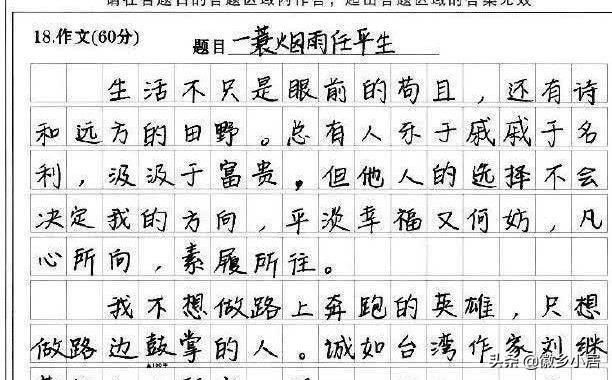 请在各题目的答题区域内作答，超出答题区域的答案无效
18.作文(60分)
题目 一蓑烟雨任平生
生活不只是眼前的苟且，还有诗
和远方的田野。总有人乐于戚戚于名
利，汲汲于富贵，但他人的选择不会
决定我的方向，平淡幸福又何妨，凡
心所向，素履所往。
我不想做路上奔跑的英雄，只想
做路边鼓掌的人。诚如台湾作家刘继
头条@徽乡小居